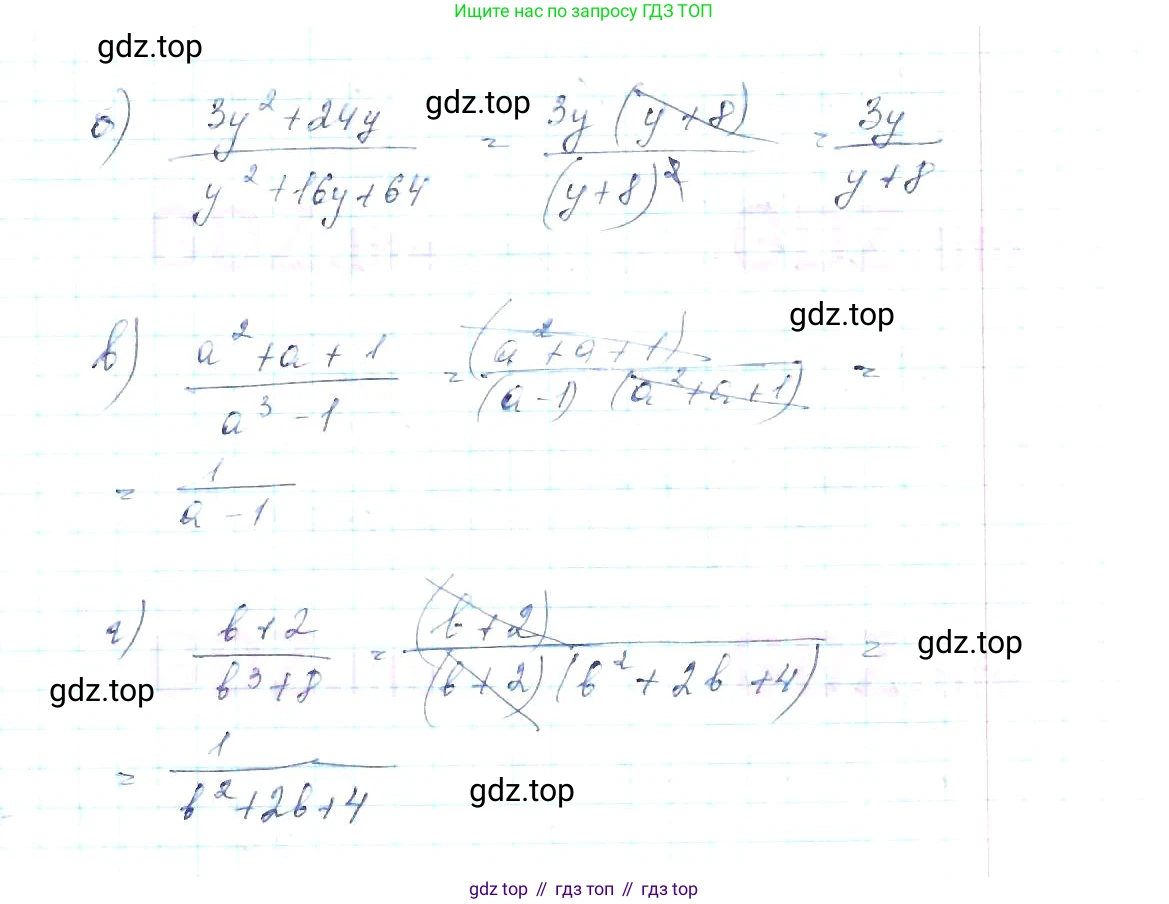 Ищите нас по запросу ГДЗ ТОП
gdz.top
б) (3y² + 24y)/(y² + 16y + 64) = (3y (y + 8))/((y + 8)²) = 3y/(y + 8)
gdz.top
gdz.top
в) (a² + a + 1)/(a³ - 1) = ((a² + a + 1))/((a - 1) (a² + a + 1)) =
= 1/(a - 1)
г) (b + 2)/(b³ + 8) = ((b + 2))/((b + 2) (b² + 2b + 4)) =
gdz.top
gdz.top
= 1/(b² + 2b + 4)
gdz.top
gdz top // гдз топ // гдз top